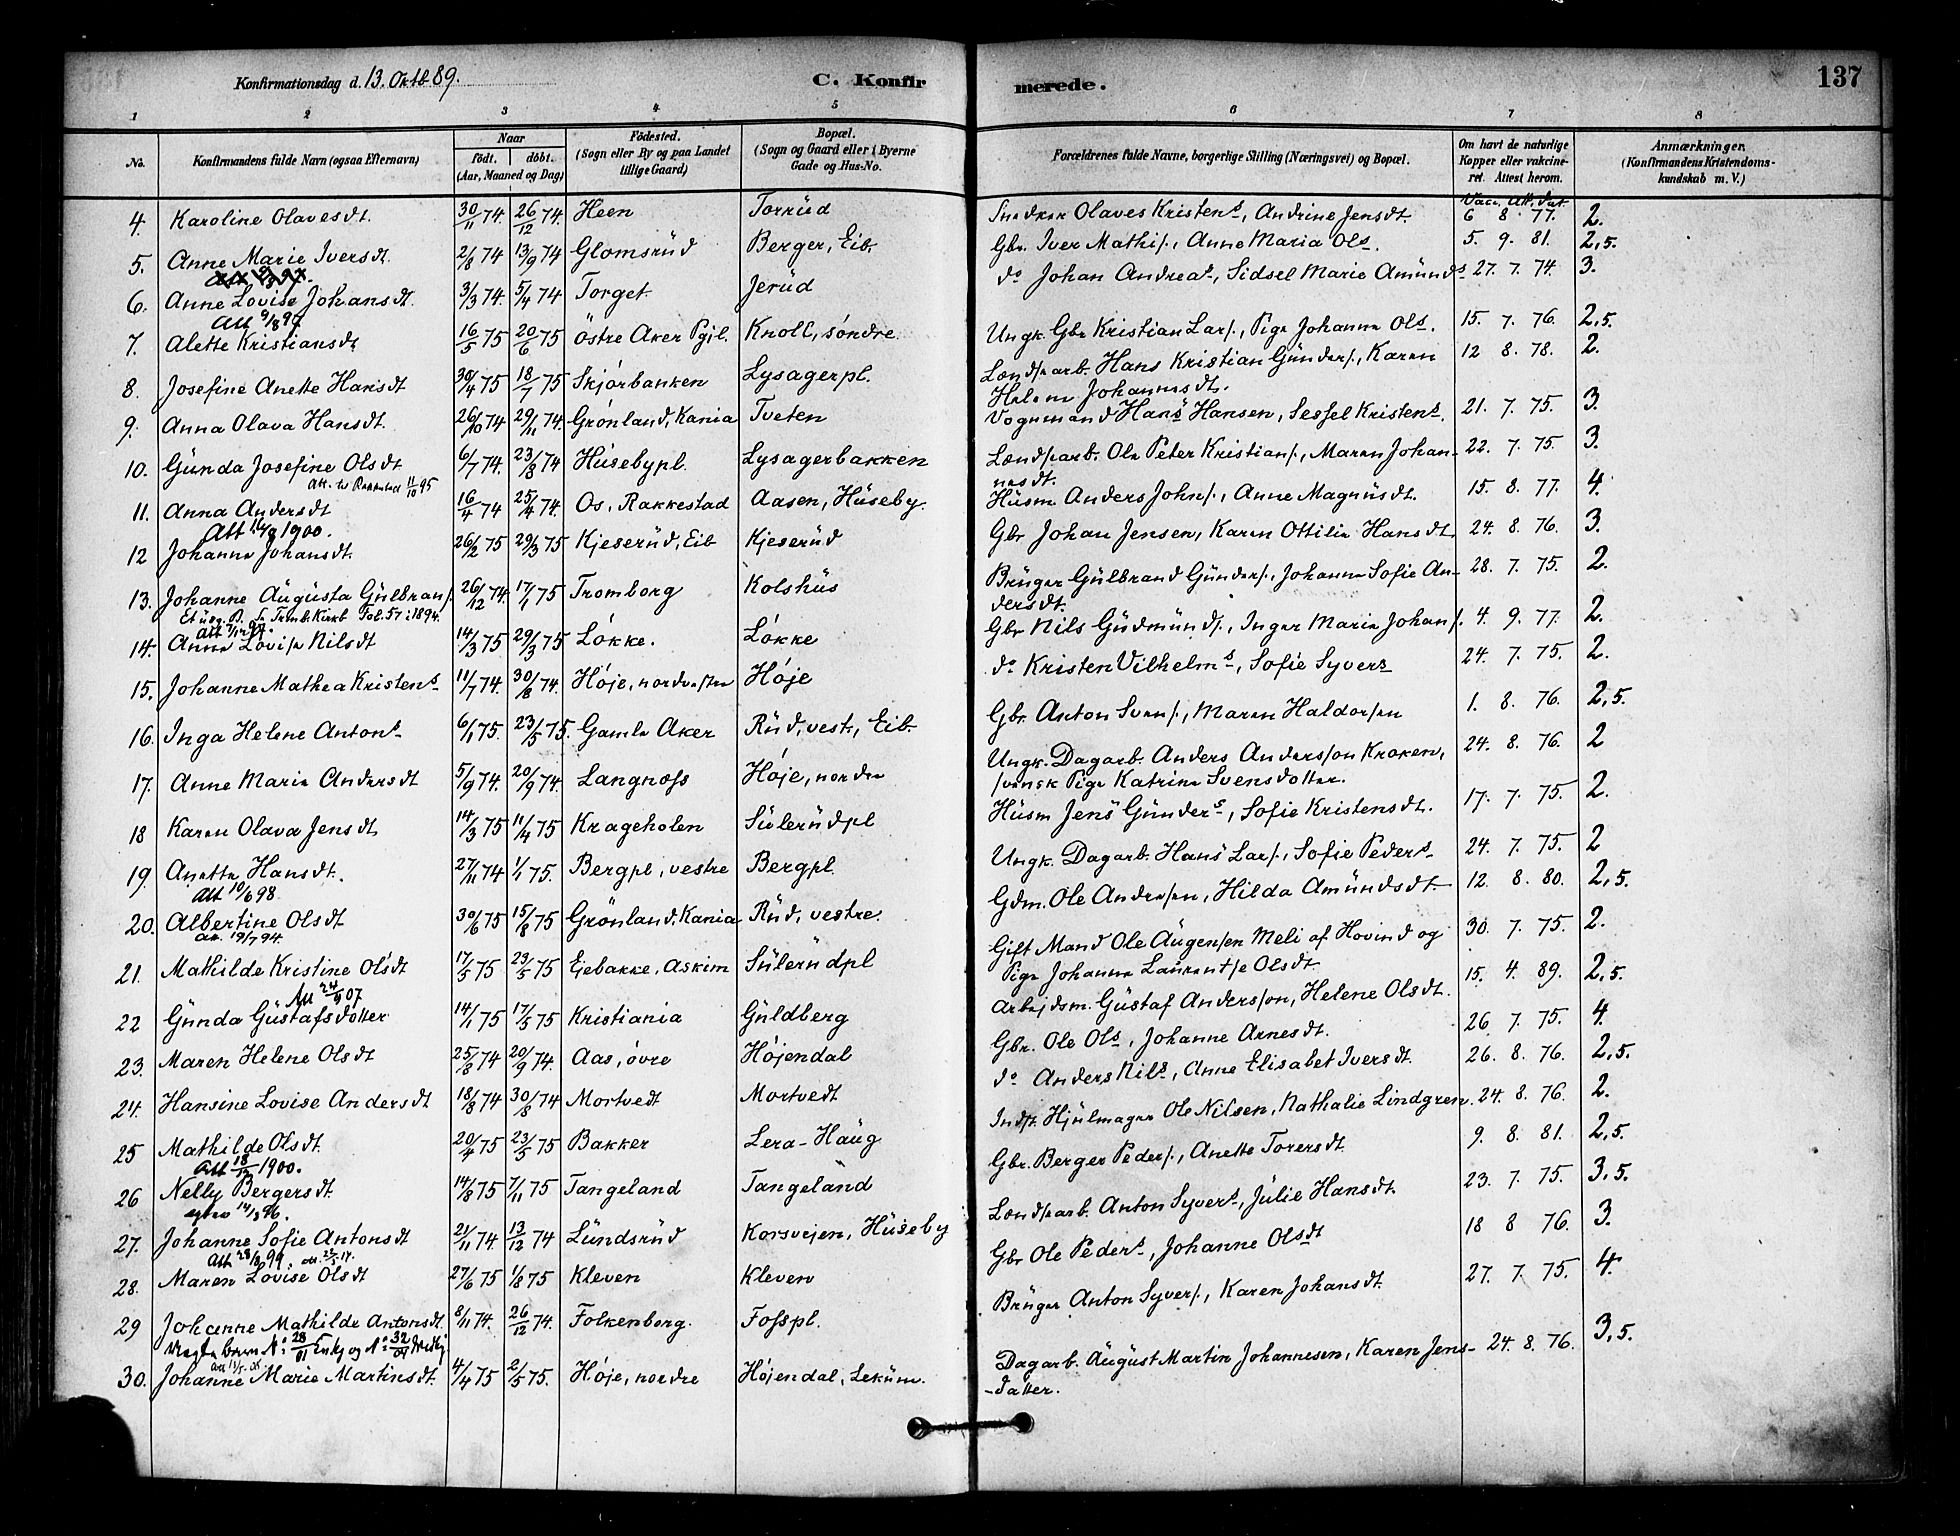 Konfirmationsdag d. 13. Oktb 89.
C. Konfir
merede.
137
1 2 3 4 5 6 7 8
No.
Konfirmandens fulde Navn (ogsaa Efternavn)
Naar
födt. döbt.
(Aar, Maaned og Dag)
Födested.
(Sogn eller By og paa Landet
tillige Gaard)
Bopæl.
(Sogn og Gaard eller i Byerne
Gade og Hus-No.
Forældrenes fulde Navne, borgerlige Stilling (Næringsvei) og Bopæl.
Om havt de naturlige
Kopper eller vakcine-
ret. Attest herom.
Anmærkninger.
(Konfirmandens Kristendoms-
kundskab m. V.)
Vacc. Att. dat.
4. Karoline Olavesdt. 30/11 74. 26/12 74. Heen Torrüd Snedker Olaves Kristens, Andrine Jensdt. 6 8. 77. 2.
5. Anne Marie Iversdt. 2/8 74 13/9 74 Glomsrüd Berger, Eib. Gbr. Iver Mathis., Anne Maria Ols. 5. 9. 81. 2,5.
6. Anne Lovise Johansdt. 3/3 74. 5/4 74 Torget. Jerüd do Johan Andreas, Sidsel Marie Amünds 27. 7. 74. 3.
Att 9/8 97
7. Alette Kristiansdt 16/5 75 20/6 75 Östre Aker Pgjl. Knoll, söndre. Ungk. Gbr Kristian Lars., Pige Johanna Ols. 15. 7. 76. 2,5.
8. Josefine Anette Hansdt 30/4 75 18/7 75 Skjörbanken Lysagerpl. Lændsarb. Hans Kristian Günders., Karen 12 8. 78. 2.
Helene Johannesdt.
9. Anna Olava Hansdt. 26/10 74 29/11 74. Grönland, Kania Tveten Vognmand Hans Hansen, Sessel Kristens. 21. 7. 75. 3.
10. Günda Josefine Olsdt 6/7 74. 23/8 74 Hüsebypl. Lysagerbakken Lændsarb. Ole Peter Kristians., Maren Johan- 22. 7. 75. 3.
att. til Rakkestad 11/10 95
nesdt.
11. Anna Andersdt 16/4 74 25/4 74. Os, Rakkestad Aasen, Hüseby. Hüsm Anders Johns., Anne Magnüsdt. 15. 8. 77. 4.
12 Johanne Johansdt. 26/2 75 29/3 75 Kjeserüd, Eib Kjeserüd Gbr Johan Jensen, Karen Ottilie Hansdt. 24. 8. 76. 3.
13. Johanne Augüsta Gülbrans. 26/12 74. 17/1 75 Tromborg Kolshüs Brüger Gülbrand Günders., Johanne Sofie An- 28. 7. 75. 2.
dersdt.
14. Anna Lovise Nilsdt 14/3 75 29/3 75 Lökke. Lökke Gbr Nils Güdmünds., Inger Marie Johans. 4. 9. 77. 2.
15. Johanne Mathea Kristens 11/7 74. 30/8 74. Höje, nordvestre Höje do Kristen Vilhelms, Sofie Syvers 24. 7. 75. 2.
16. Inga Helene Antons 6/1 75. 23/5 75. Gamle Aker Rüd, vest., Eib. Gbr. Anton Svens., Maren Haldorsen 1. 8. 76. 2,5.
17. Anne Marie Andersdt 5/9 74. 20/9 74. Langnoss Höje, nordre Ungk. Dagarb. Anders Andersson Kroken, 24. 8. 76. 2
svensk Pige Katrine Svensdotter.
18 Karen Olava Jensdt 14/3 75 11/4 75 Krageholen Sülerüdpl Hüsm Jens Günders, Sofie Kristensdt. 17. 7. 75. 2.
19. Anette Hansdt. 27/11 74 1/1 75. Bergpl, vestre Bergpl. Ungk. Dagarb. Hans Lars., Sofie Peders 24. 7. 75. 2
Att 10/6 98
20. Albertine Olsdt 30/6 75 15/8 75 Grönland, Kania Rüd, vestre. Gdm. Ole Andresen, Hilda Amündsdt. 12. 8. 80. 2,5.
att. 19/7 94.
21. Mathilde Kristine Olsdt 17/5 75 23/5 75 Ejebakke, Askim Sülerüdpl Gift Mand Ole Augensen Meli af Hovind og 30. 7. 75. 2.
Pige Johanna Laurentse Olsdt.
22 Günda Güstafsdotter 14/1 75 17/5 75 Kristiania Güldberg Arbejdsm. Güstaf Andersson, Helene Olsdt. 15. 4. 89. 2,5.
23. Maren Helene Olsdt 25/8 74 20/9 74. Aas, övre Höjendal Gbr. Ole Ols, Johanne Arnesdt. 26. 7. 75. 4.
24. Hansine Lovise Andersdt 18/8 74 30/8 74 Mortvedt Mortvedt do Anders Nils, Anne Elisabet Iversdt. 26. 8. 76. 2,5.
25 Mathilde Olsdt. 20/4 75 23/5 75 Bakker Lera-Haüg Indst. Hjülmager Ole Nilsen, Nathalie Lindgren. 24. 8. 76. 2.
Att 18/12 1900.
26 Nelly Bergersdt. 14/8 75 7/11 75 Tangeland Tangeland Gbr. Berger Peders., Anette Torersdt. 9. 8. 81. 2,5.
27. Johanne Sofie Antonsdt 21/11 74. 13/12 74 Lündsrüd Korsvejen, Hüseby Lændsarb. Anton Syvers, Jülie Hansdt. 23. 7. 75. 3,5.
28. Maren Lovise Olsdt 27/6 75 1/8 75 Kleven Kleven Gbr Ole Peders, Johanne Olsdt 18 8 76. 3.
29 Johanne Mathilde Antonsdt. 8/11 74. 26/12 74. Folkenborg. Fosspl. Brüger Anton Syvers., Karen Johansdt. 27. 7. 75. 4.
30. Johanne Marie Martinsdt. 4/4 75 2/5 75. Höje, nordre Höjendal, Leküm. Dagarb. August Martin Johannesen, Karen Jens- 24. 8. 76. 3,5.
-datter.